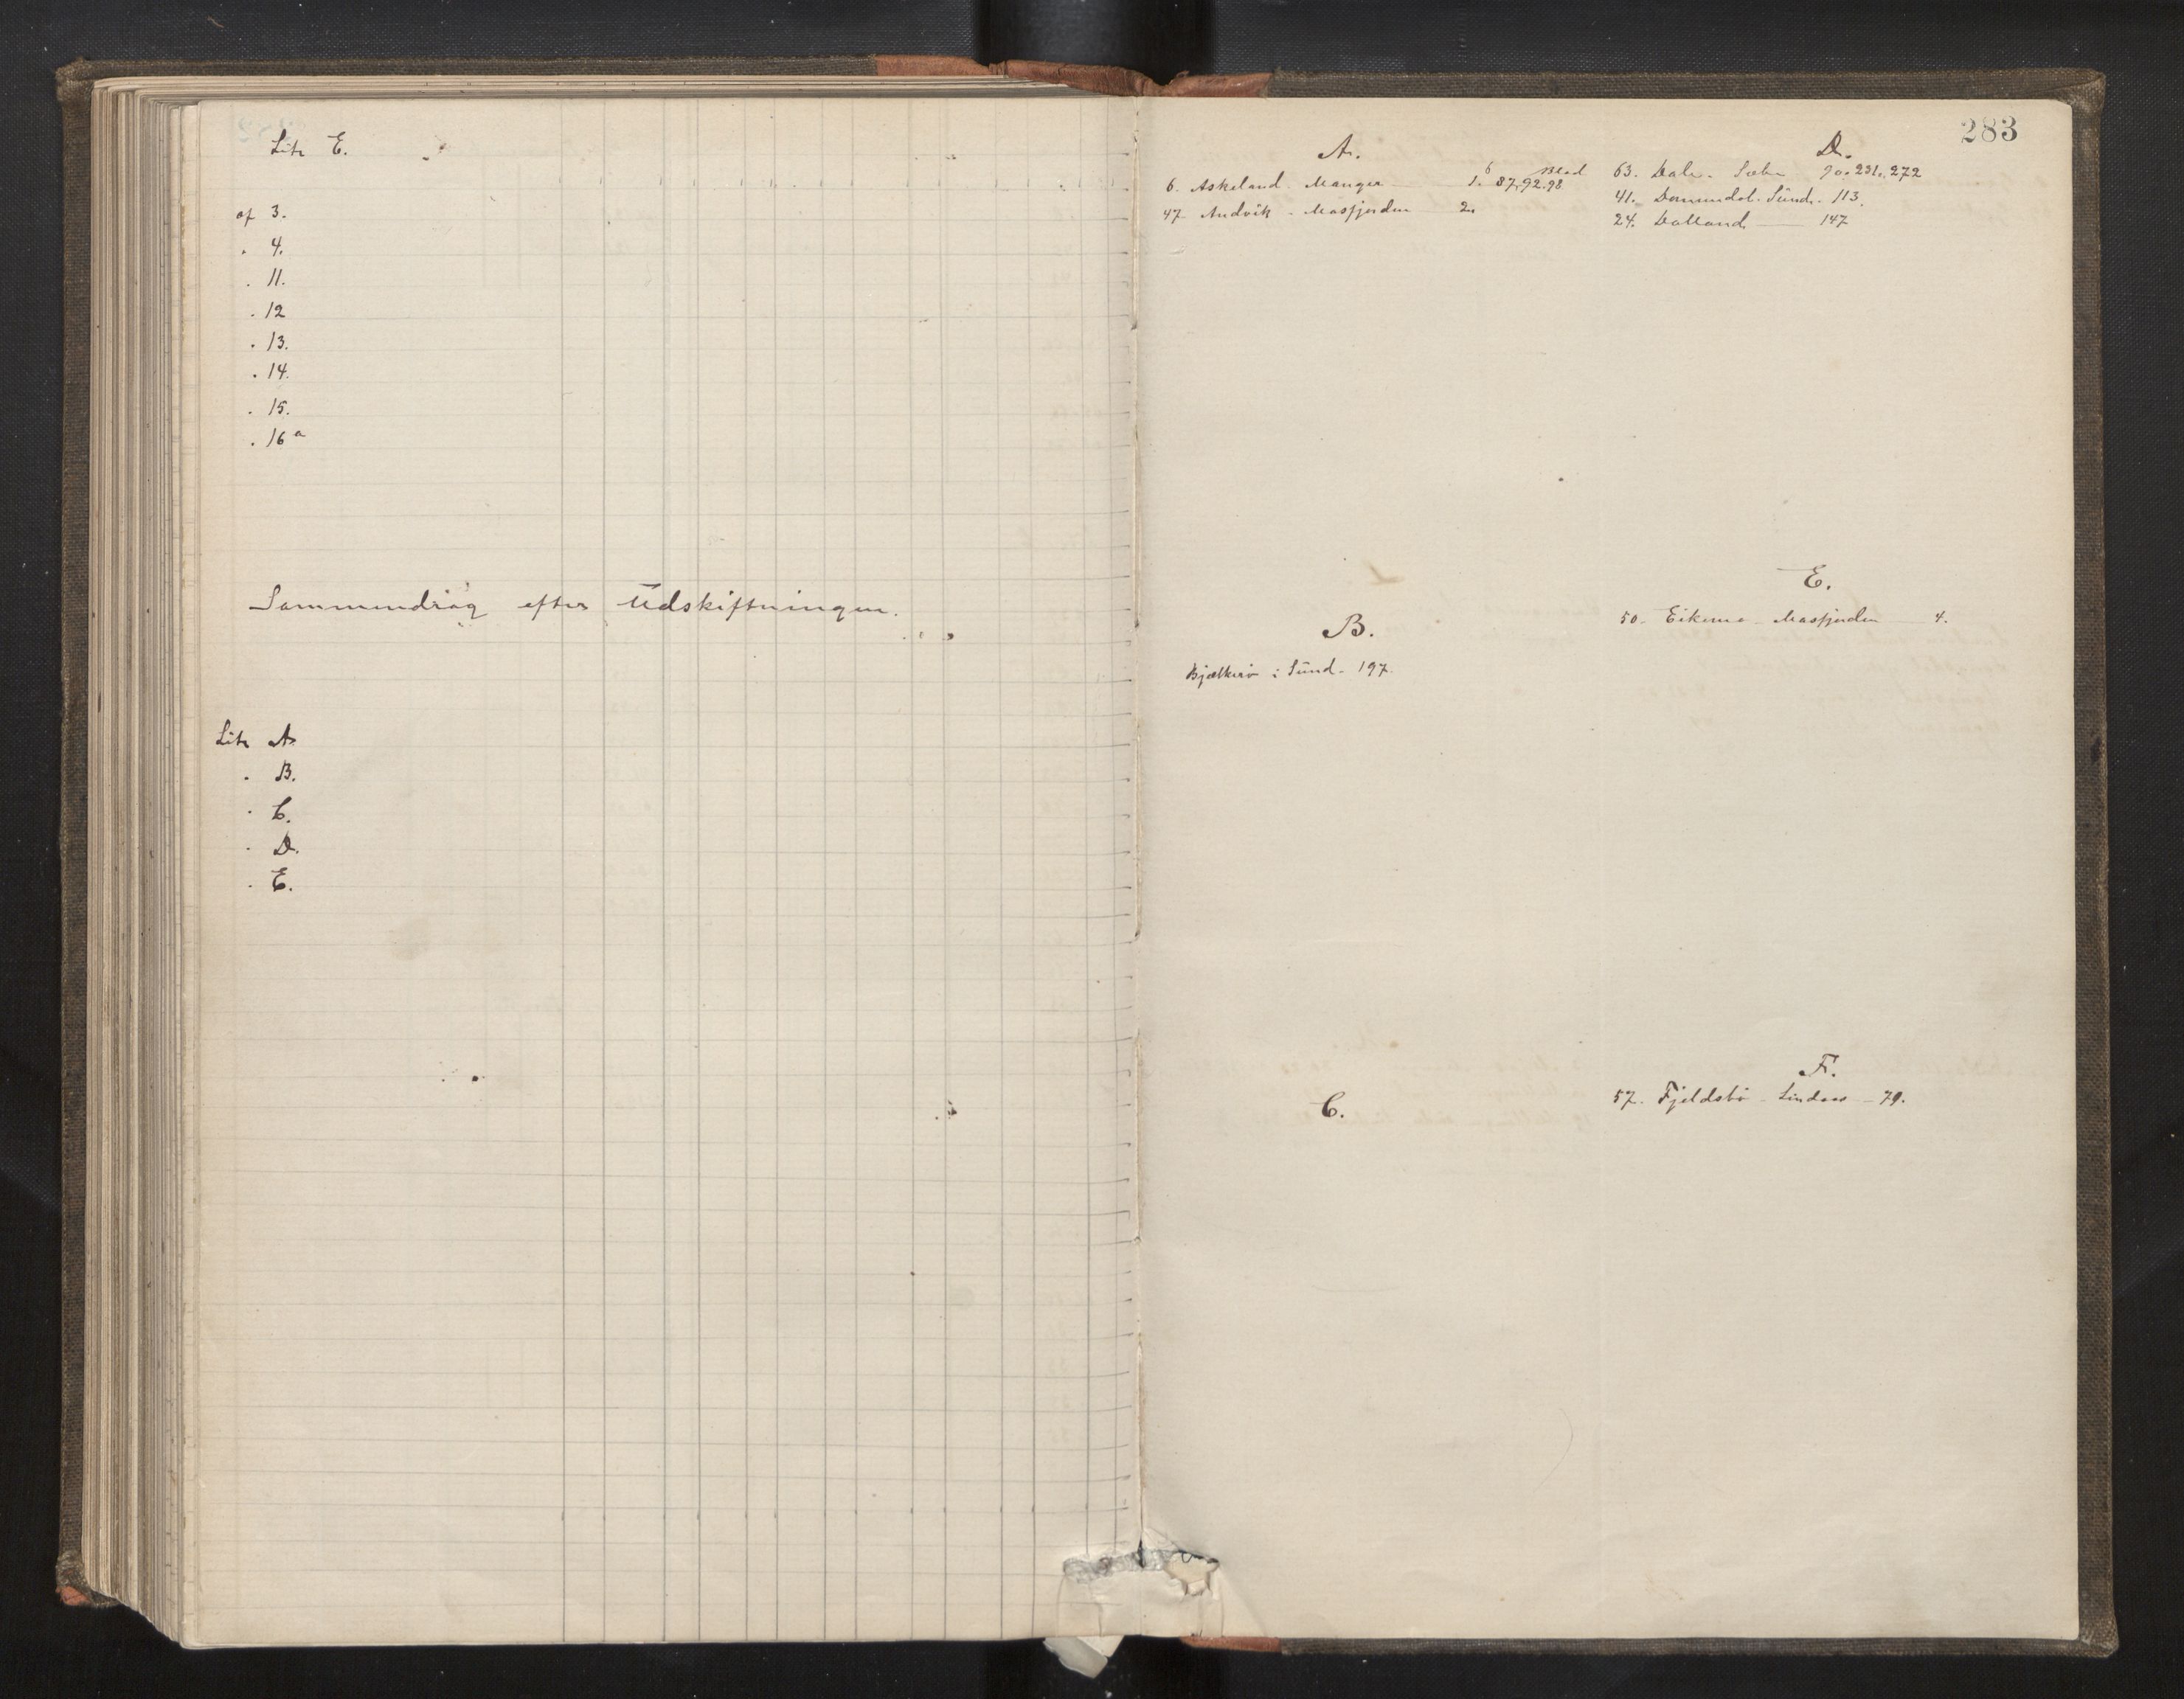 Litr E.
af 3.
. 4.
. 11.
. 12
. 13.
. 14.
. 15.
. 16 a
Sammendrag efter Udskiftningen.
Litr A.
. B.
. C.
. D.
. E.
283
A.
Blad
6. Askeland. Manger 1. 6 87, 92. 98
47. Andvik - Masfjorden 2.
B.
Bjelkerö i Sund - 197.
C.
D.
63. Dale. Sæbø 90. 231. 272
41. Sund. 113.
24. Dalland 147
E.
50. Masfjorden 4.
F.
57. Fjeldsbö - Lindaas - 79.